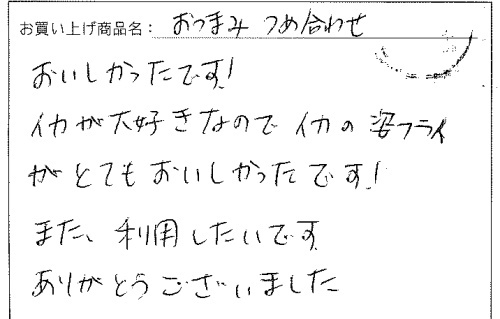 お買い上げ商品名： おつまみ つめ合わせ
おいしかったです!
イカが大好きなので イカの姿フライ
がとてもおいしかったです!
また、利用したいです
ありがとうございました